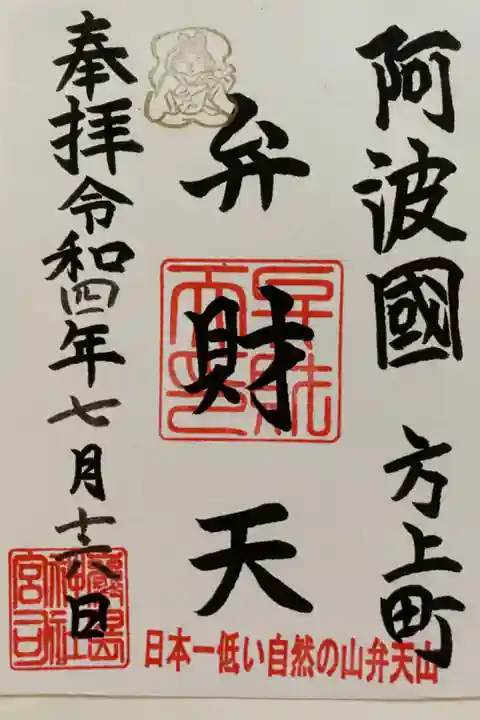 阿波國 方上町
弁財天
奉拝令和四年七月十六日
弁財天印
神社
宮司
日本一低い自然の山弁天山